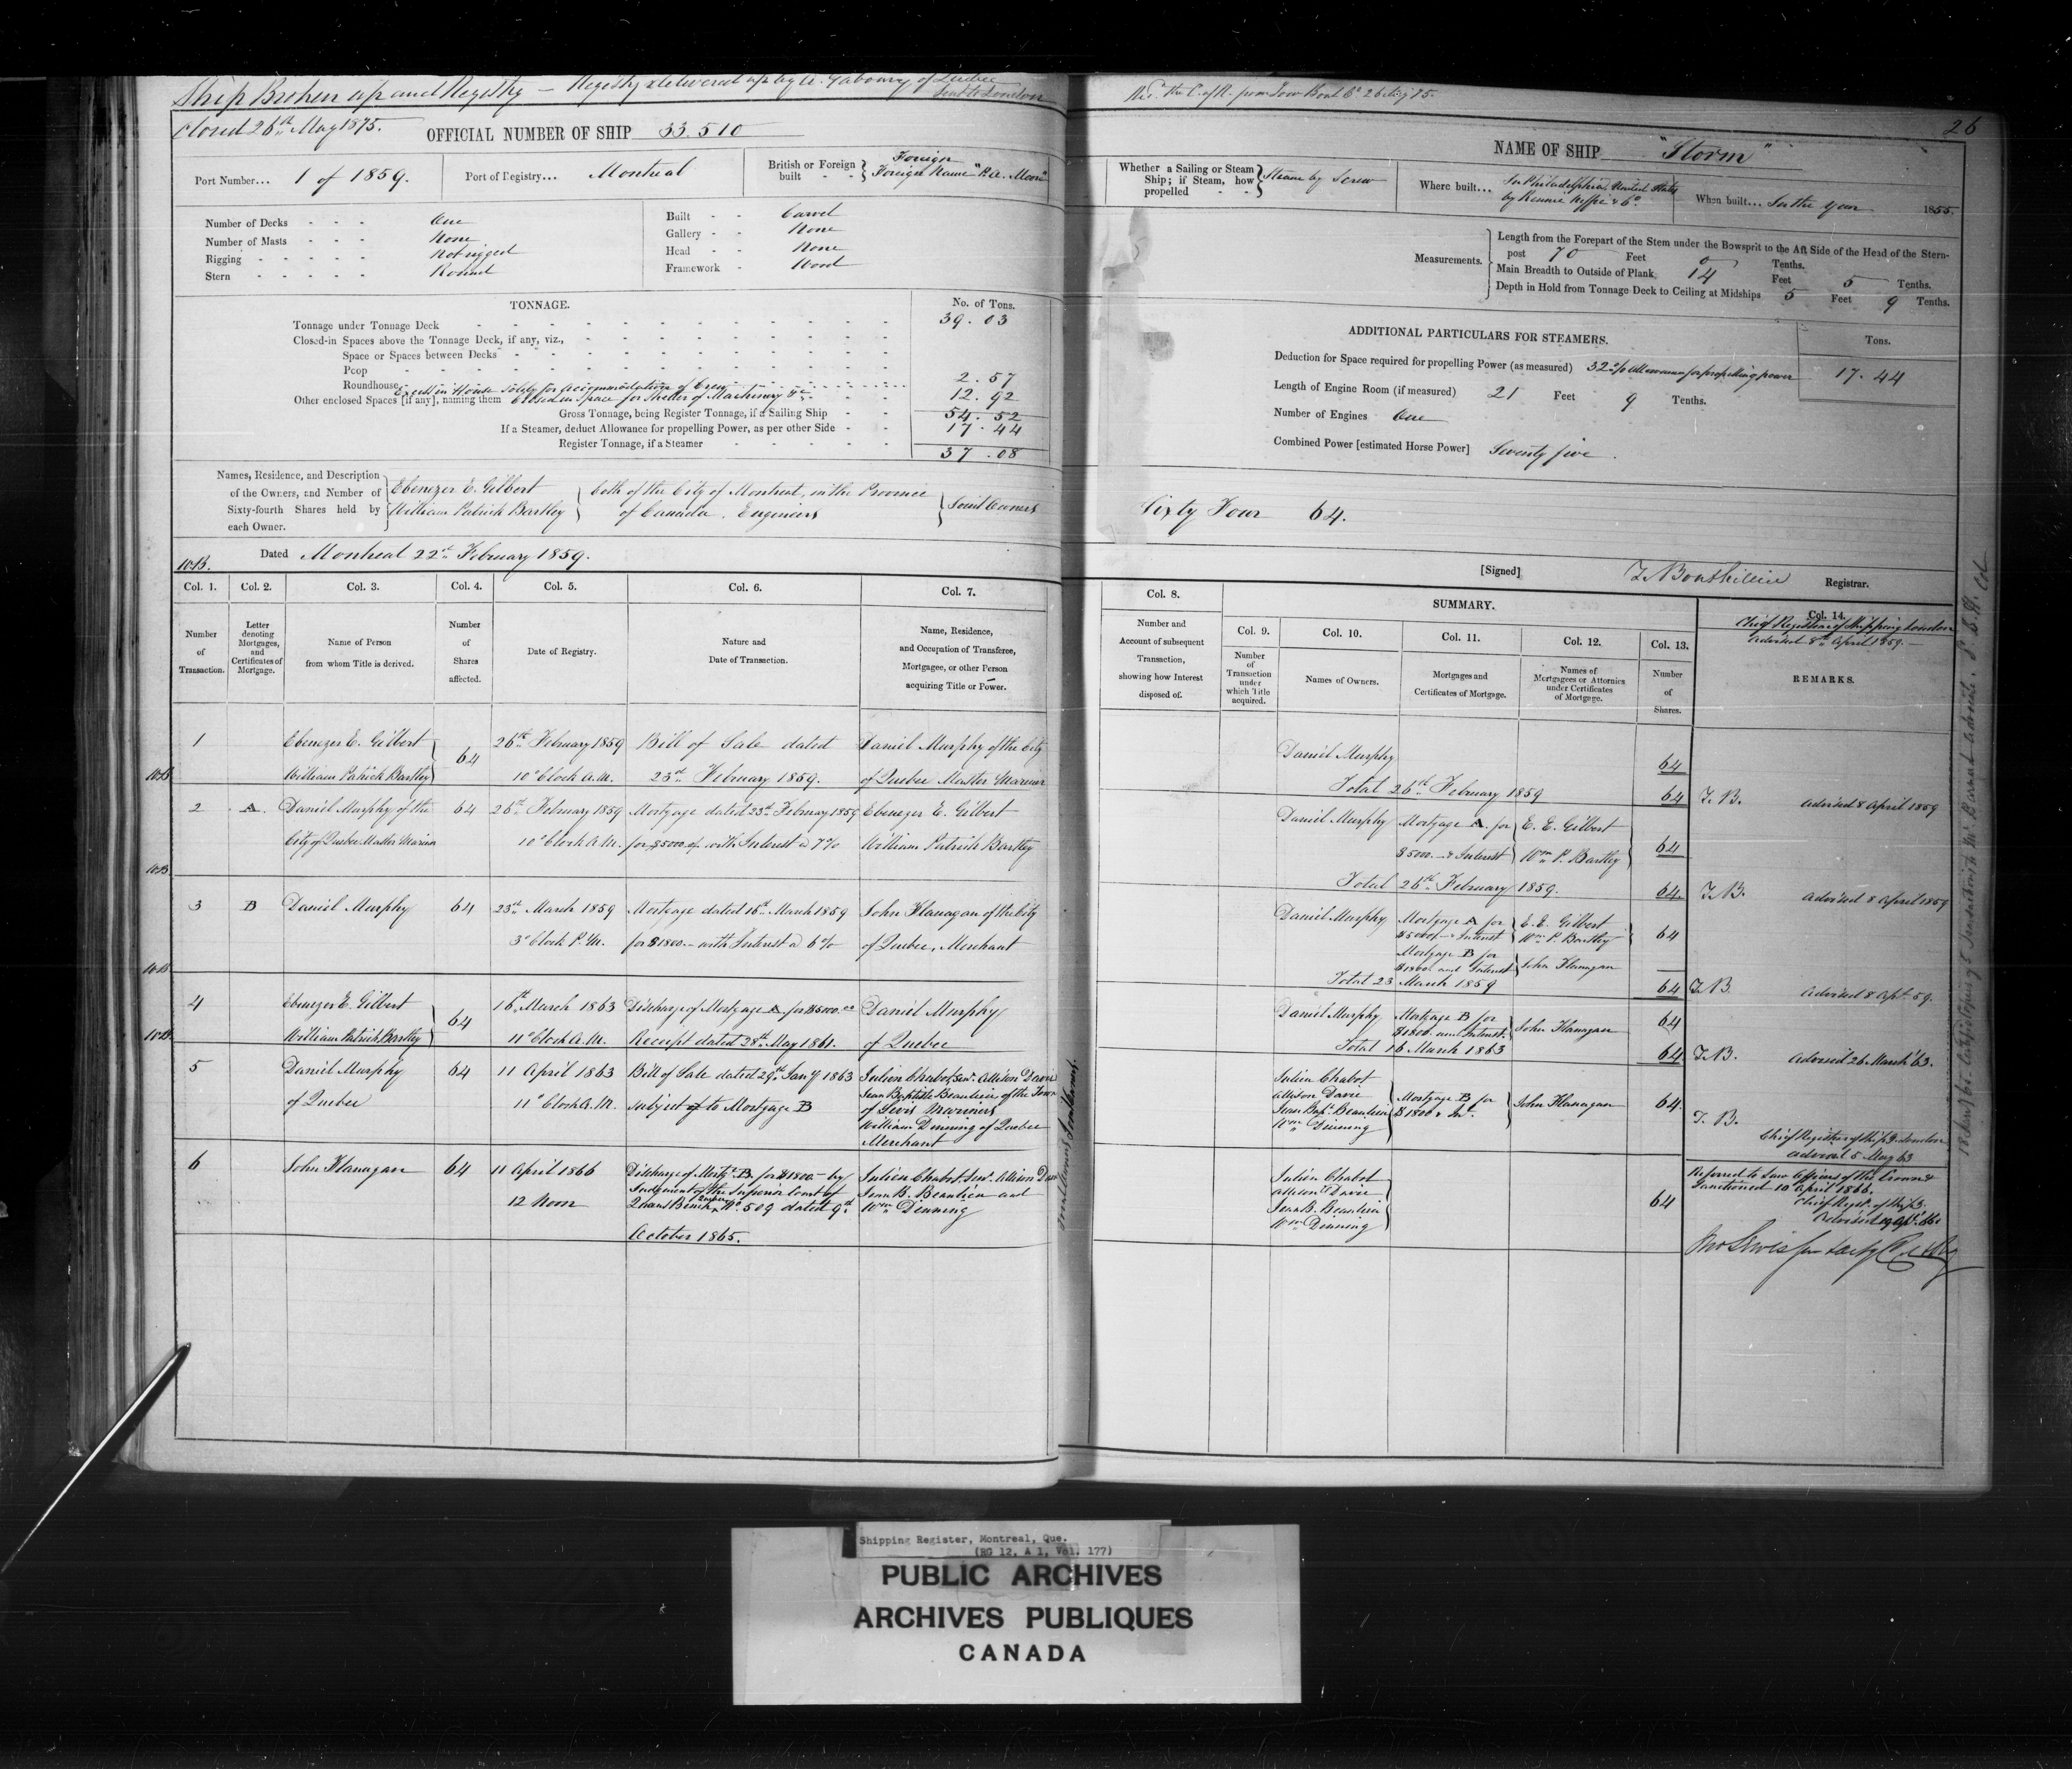 Ship Broken up and Registry — Registry delivered up by A. Gaboury of Quebec
Sent to London
closed 26th May 1875.
OFFICIAL NUMBER OF SHIP 33.510
Port Number... 1 of 1859.
Port of Registry... Montreal
British or Foreign built - - } Foreign
Foreign Name "R.A. Moore"
Number of Decks - - - One
Number of Masts - - - None
Rigging - - - - - Not rigged
Stern - - - - - Round
Built - - Carvel
Gallery - - None
Head - - None
Framework - Wood
TONNAGE.
No. of Tons.
Tonnage under Tonnage Deck 39.03
Closed-in Spaces above the Tonnage Deck, if any, viz.,
Space or Spaces between Decks
Poop
Roundhouse 2.57
Excess in House solely for accommodation of Crew
Other enclosed Spaces [if any], naming them Closed in Space for Shelter of Machinery &c 12.92
Gross Tonnage, being Register Tonnage, if a Sailing Ship - - 54.52
If a Steamer, deduct Allowance for propelling Power, as per other Side - - 17.44
Register Tonnage, if a Steamer 37.08
Names, Residence, and Description
of the Owners, and Number of
Sixty-fourth Shares held by
each Owner.
Ebenezer E. Gilbert
William Patrick Bartley
both of the City of Montreal, in the Province
of Canada. Engineers
Joint Owners
Dated Montreal 22d February 1859.
Col. 1. Col. 2. Col. 3. Col. 4. Col. 5. Col. 6. Col. 7.
Number of Transaction.
Letter denoting Mortgages, and Certificates of Mortgage.
Name of Person from whom Title is derived.
Number of Shares affected.
Date of Registry.
Nature and Date of Transaction.
Name, Residence, and Occupation of Transferee, Mortgagee, or other Person acquiring Title or Power.
1 Ebenezer E. Gilbert 64 26th February 1859 Bill of Sale dated Daniel Murphy of the City
William Patrick Bartley 10 o'Clock A.M. 23rd February 1859. of Quebec Master Mariner
2 A. Daniel Murphy of the 64 26th February 1859 Mortgage dated 23rd February 1859 Ebenezer E. Gilbert
City of Quebec Master Mariner 10 o'Clock A.M. for $5000 with Interest @ 7% William Patrick Bartley
3 B Daniel Murphy 64 23rd March 1859 Mortgage dated 16th March 1859 John Flanagan of the City
3 o'Clock P.M. for $1800 - with Interest @ 6% of Quebec, Merchant
4 Ebenezer E. Gilbert 64 16th March 1863 Discharge of Mortgage A for $5000.00 Daniel Murphy
William Patrick Bartley 11 o'Clock A.M. Receipt dated 28th May 1861. of Quebec
5 Daniel Murphy 64 11 April 1863 Bill of Sale dated 29th Jany 1863 Julien Chabot, Senr. Allison Davie
of Quebec 11 o'Clock A.M. subject to Mortgage B Jean Baptiste Beaulieu of the Town
of Levis Mariners
William Dinning of Quebec
Merchant
6 John Flanagan 64 11 April 1866 Discharge of Mortg. B. for $1800 - by Julien Chabot, Senr. Allison Davie
12 Noon Judgement of the Superior Court of Jean B. Beaulieu and
Queens Bench Quebec No. 509 dated 9th Wm Dinning
October 1865.
26
NAME OF SHIP "Storm"
Whether a Sailing or Steam Ship; if Steam, how propelled - - } Steam by Screw
Where built... In Philadelphia, United States
When built... In the year 1855.
Measurements.
Length from the Forepart of the Stem under the Bowsprit to the Aft Side of the Head of the Stern-
post 70 Feet 0 Tenths.
Main Breadth to Outside of Plank 14 Feet 5 Tenths.
Depth in Hold from Tonnage Deck to Ceiling at Midships 5 Feet 9 Tenths.
ADDITIONAL PARTICULARS FOR STEAMERS.
Tons.
Deduction for Space required for propelling Power (as measured) 32% Allowance for propelling power 17.44
Length of Engine Room (if measured) 21 Feet 9 Tenths.
Number of Engines One
Combined Power [estimated Horse Power] Seventy five.
Sixty Four 64.
[Signed] T. Bouthillier Registrar.
Col. 8.
Number and Account of subsequent Transaction, showing how Interest disposed of.
SUMMARY.
Col. 9. Col. 10. Col. 11. Col. 12. Col. 13. Col. 14.
Number of Transaction under which Title acquired.
Names of Owners.
Mortgages and Certificates of Mortgage.
Names of Mortgagees or Attornies under Certificates of Mortgage.
Number of Shares.
Chief Registrar of Shipping London
advised 8th April 1859.
REMARKS.
Daniel Murphy 64
Total 26th February 1859 64 T.B. advised 8 April 1859
Daniel Murphy Mortgage A for E. E. Gilbert
$5000 & Interest Wm P. Bartley 64
Total 26th February 1859. 64 T.B. advised 8 April 1859
Daniel Murphy Mortgage A for E.E. Gilbert
$5000 Interest Wm P. Bartley 64
Mortgage B for
$1800 and Interest John Flanagan
Total 23 March 1859 64 T.B. advised 8 Apl. 59.
Daniel Murphy Mortgage B for
$1800 and Interest. John Flanagan 64
Total 16 March 1863 64 T.B. advised 26 March '63.
Julien Chabot
Allison Davie Mortgage B for
Jean Bapt. Beaulieu $1800 & Int. John Flanagan 64
Wm Dinning T.B.
Chief Registrar of Ship'g London
advised 5 May 63
Julien Chabot
Allison Davie
Jean B. Beaulieu
Wm Dinning 64
Referred to Law Officers of the Crown &
sanctioned 10 April 1866.
Shipping Register, Montreal, Que.
(RG 12, A 1, Vol. 177)
PUBLIC ARCHIVES
ARCHIVES PUBLIQUES
CANADA